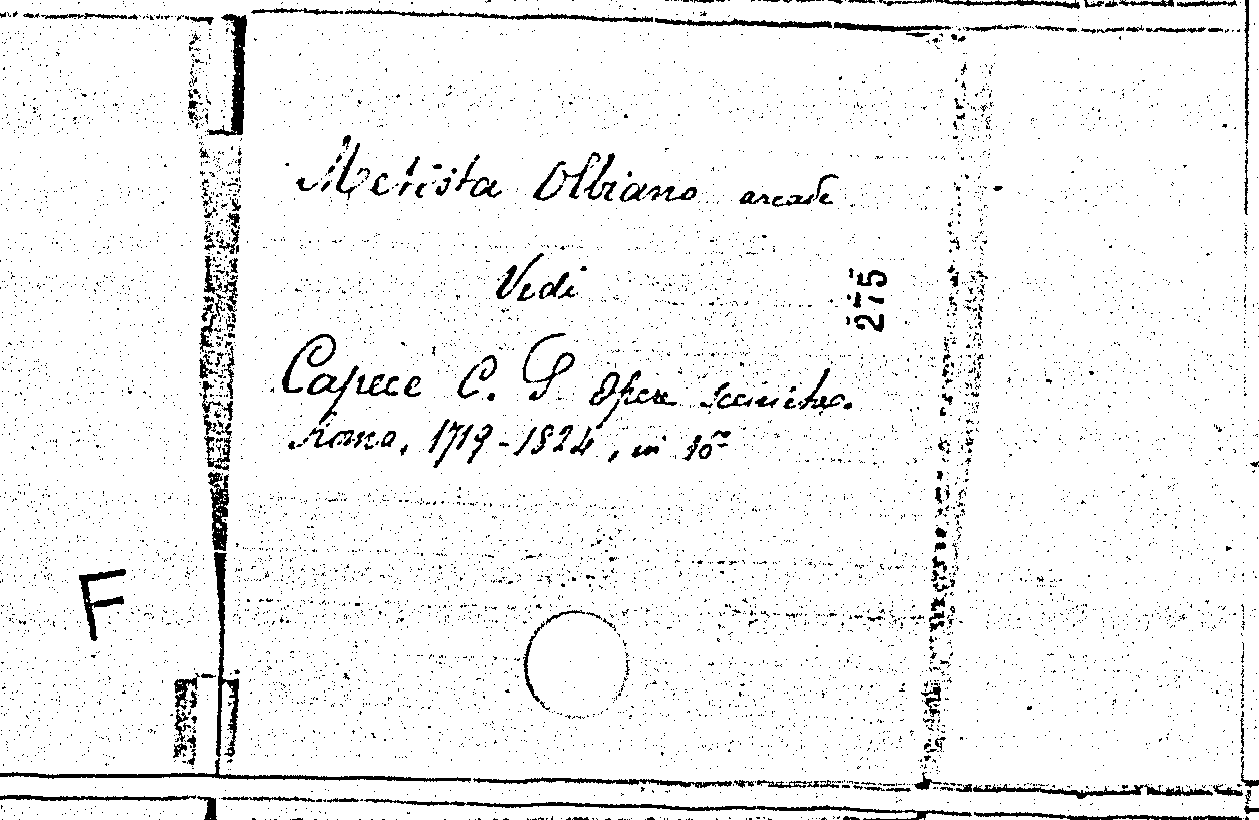 Metista Olbiano arcade
Vedi
275
Capece C. S. Opere sceniche.
Roma, 1719-1824, in 16°
F